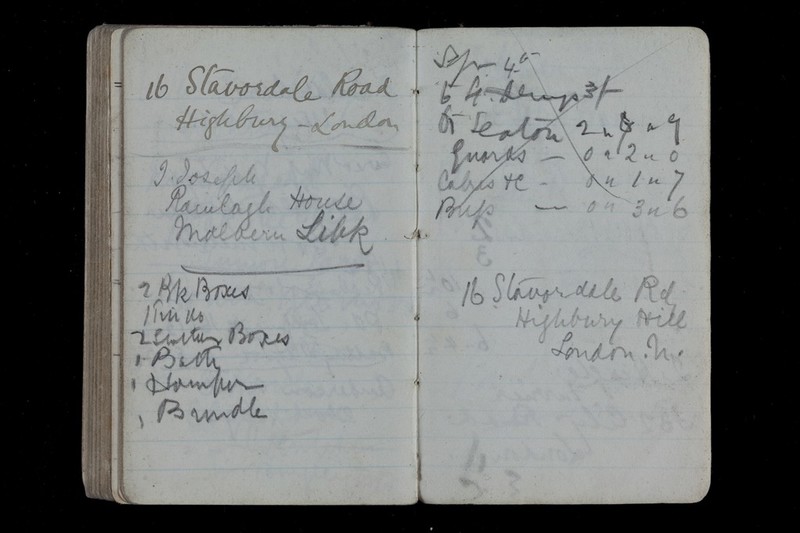 16 Stavordale Road
Highbury - London
J. Joseph
Ranlagh House
Malvern Link
2 Bk Boxes
1 Tin do
2 Boxes
1 Bath
1 Hamper
1 Bundle
Sep 4th
to Seaton 2 " 6 " 9
Guards — 0 " 2 " 0
Cabs &c - 0 " 1 " 7
— 0 " 3 " 6
16 Stavordale Rd
Highbury Hill
London. N.